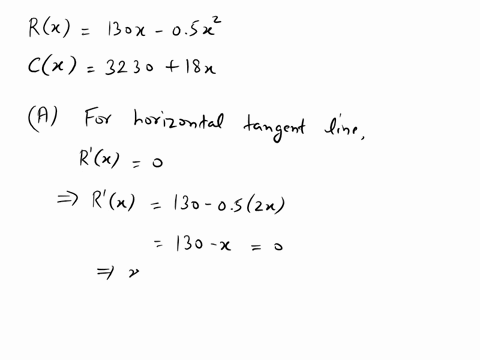 R(x) = 130x - 0.5x²
C(x) = 3230 + 18x
(A) For horizontal tangent line,
R'(x) = 0
⇒ R'(x) = 130 - 0.5(2x)
= 130 - x = 0
⇒ x